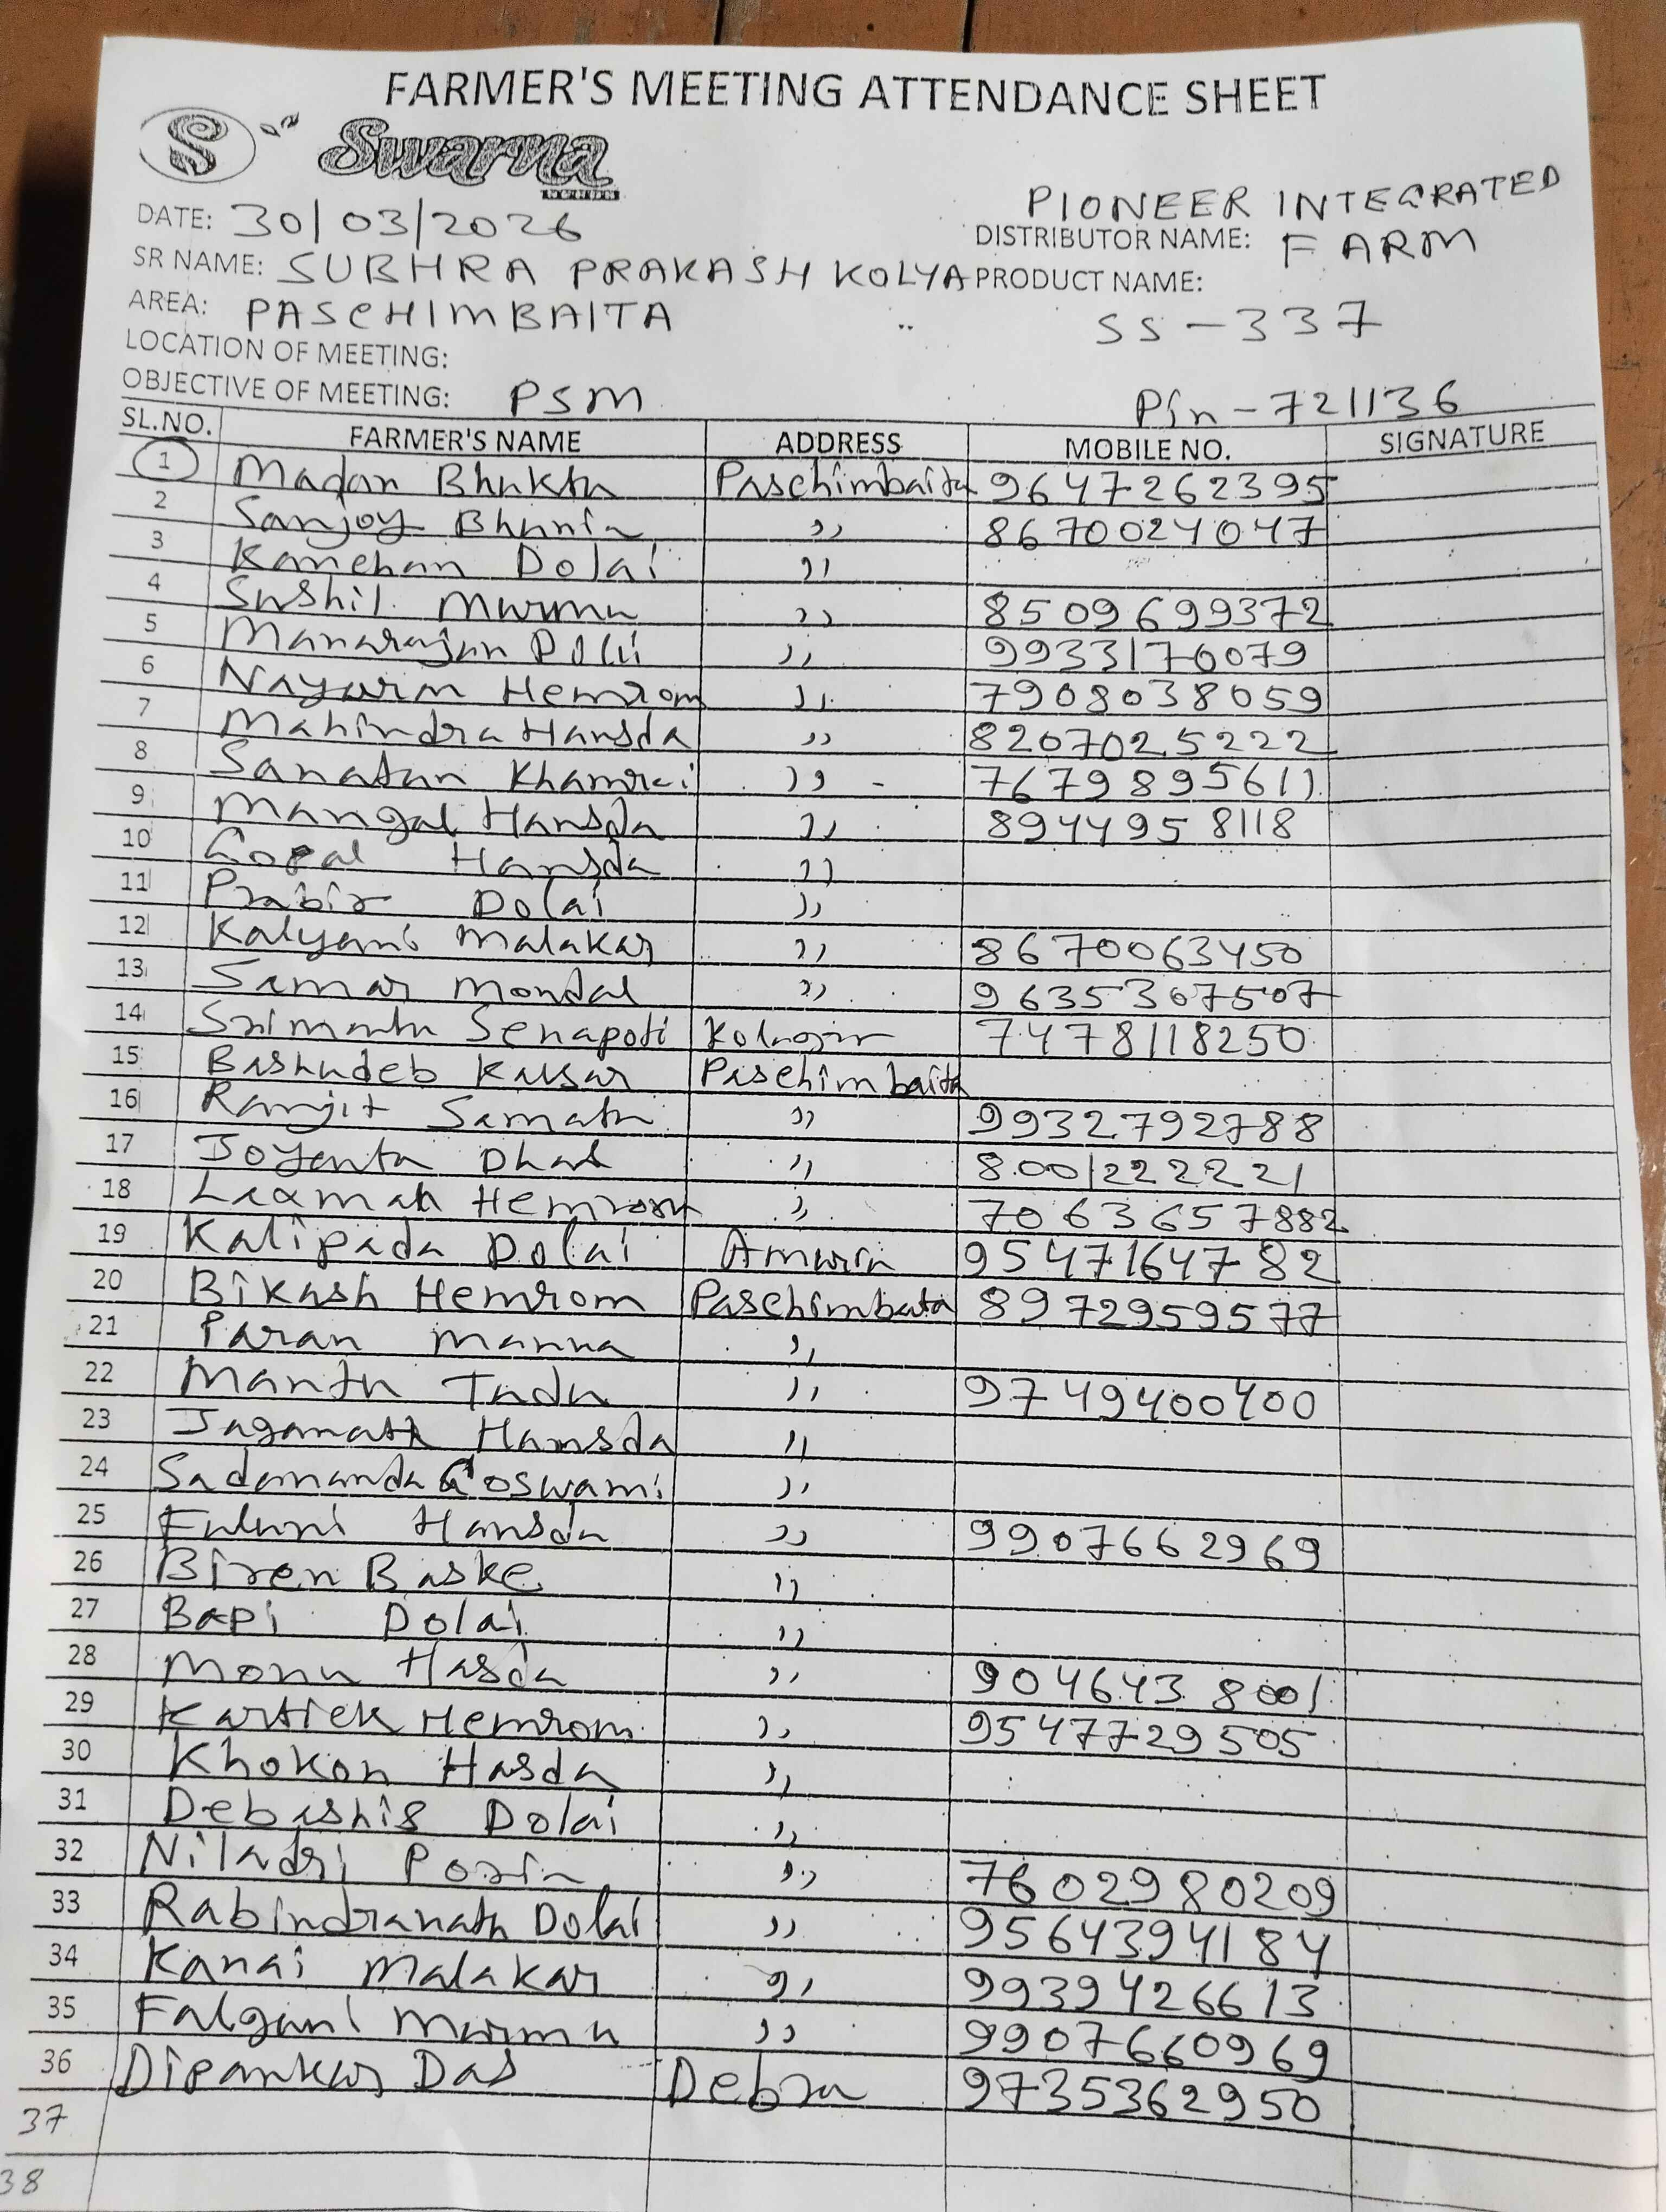 FARMER'S MEETING ATTENDANCE SHEET
S Swarna
DATE: 30/03/2026 PIONEER INTEGRATED
DISTRIBUTOR NAME: FARM
SR NAME: SUBHRA PRAKASH KOLYA PRODUCT NAME:
AREA: PASCHIMBAITA SS-337
LOCATION OF MEETING:
OBJECTIVE OF MEETING: PSM Pin-721136
SL.NO. FARMER'S NAME ADDRESS MOBILE NO. SIGNATURE
1 Madan Bhukta Paschimbaita 9647262395
2 Sanjoy Bhunia ,, 8670024047
3 Kanchan Dolai ,,
4 Sushil Murmu ,, 8509699372
5 Manaranjan ,, 9933176079
6 Hemrom ,, 7908038059
7 Mahindra Hansda ,, 8207025222
8 Sanatan Khamrai ,, 7679895611
9 Mangal Hansda ,, 8944958118
10 Gopal Hansda ,,
11 Prabir Dolai ,,
12 Kalyani Malakar ,, 8670063450
13 Samar Mondal ,, 9635367507
14 Srimanta Senapoti 7478118250
15 Bashudeb Paschimbaita
16 Ranjit Samata ,, 9932792788
17 Joyanta Dhal ,, 8001222221
18 Laxman Hemrom ,, 7063657882
19 Kalipada Dolai 9547164782
20 Bikash Hemrom Paschimbata 8972959577
21 Paran Manna ,,
22 Mantu Tudu ,, 9749400400
23 Jaganath Hamsda ,,
24 Sadananda Goswami ,,
25 Fuluni Hansda ,, 9907662969
26 Biren Baske ,,
27 Bapi Dolai ,,
28 Monu Hasda ,, 9046438001
29 Kartick Hemrom ,, 9547729505
30 Khokon Hasda ,,
31 Debashis Dolai ,,
32 Niladri Poria ,, 7602980209
33 Rabindranath Dolai ,, 9564394184
34 Kanai Malakar ,, 9939426613
35 Falguni Murmu ,, 9907660969
36 Dipankar Das Debra 9735362950
37
38